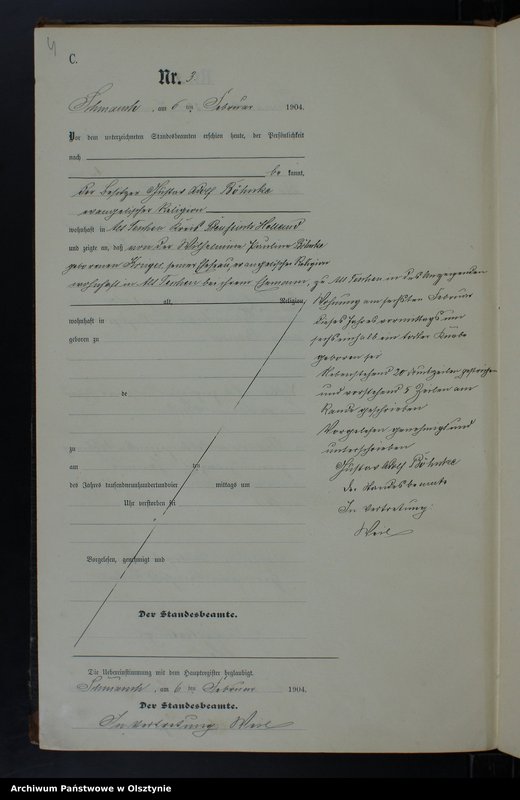 4
C.
Nr. 3.
Schmauch, am 6 ten Februar 1904.
Vor dem unterzeichneten Standesbeamten erschien heute, der Persönlichkeit
nach
be kannt,
der Besitzer Gustav Adolf Böhnke
evangelischer Religion
wohnhaft in Alt Teschen Kreis Preußisch Holland
und zeigte an, daß von der Wilhelmine Pauline Böhnke
geborenen Krüger, seiner Ehefrau, evangelischer Religion
wohnhaft in Alt Teschen bei ihrem Ehemann, zu Alt Teschen in des Anzeigenden
alt, Religion,
Wohnung am sechsten Februar
wohnhaft in
dieses Jahres vormittags um
geboren zu
sechs einhalb ein todter Knabe
geboren sei
Nebenstehend 20 Druckzeilen gestrichen
und vorstehend 5 Zeilen am
de
Rande geschrieben
Vorgelesen genehmigt und
zu
unterschrieben
am ten
Gustav Adolf Böhnke
des Jahres tausendneunhundertundvier mittags um
der Standesbeamte
Uhr verstorben sei
In Vertretung
Weil
Vorgelesen, genehmigt und
Der Standesbeamte.
Die Uebereinstimmung mit dem Hauptregister beglaubigt.
Schmauch, am 6 ten Februar 1904.
Der Standesbeamte.
In Vertretung Weil
Archiwum Państwowe w Olsztynie